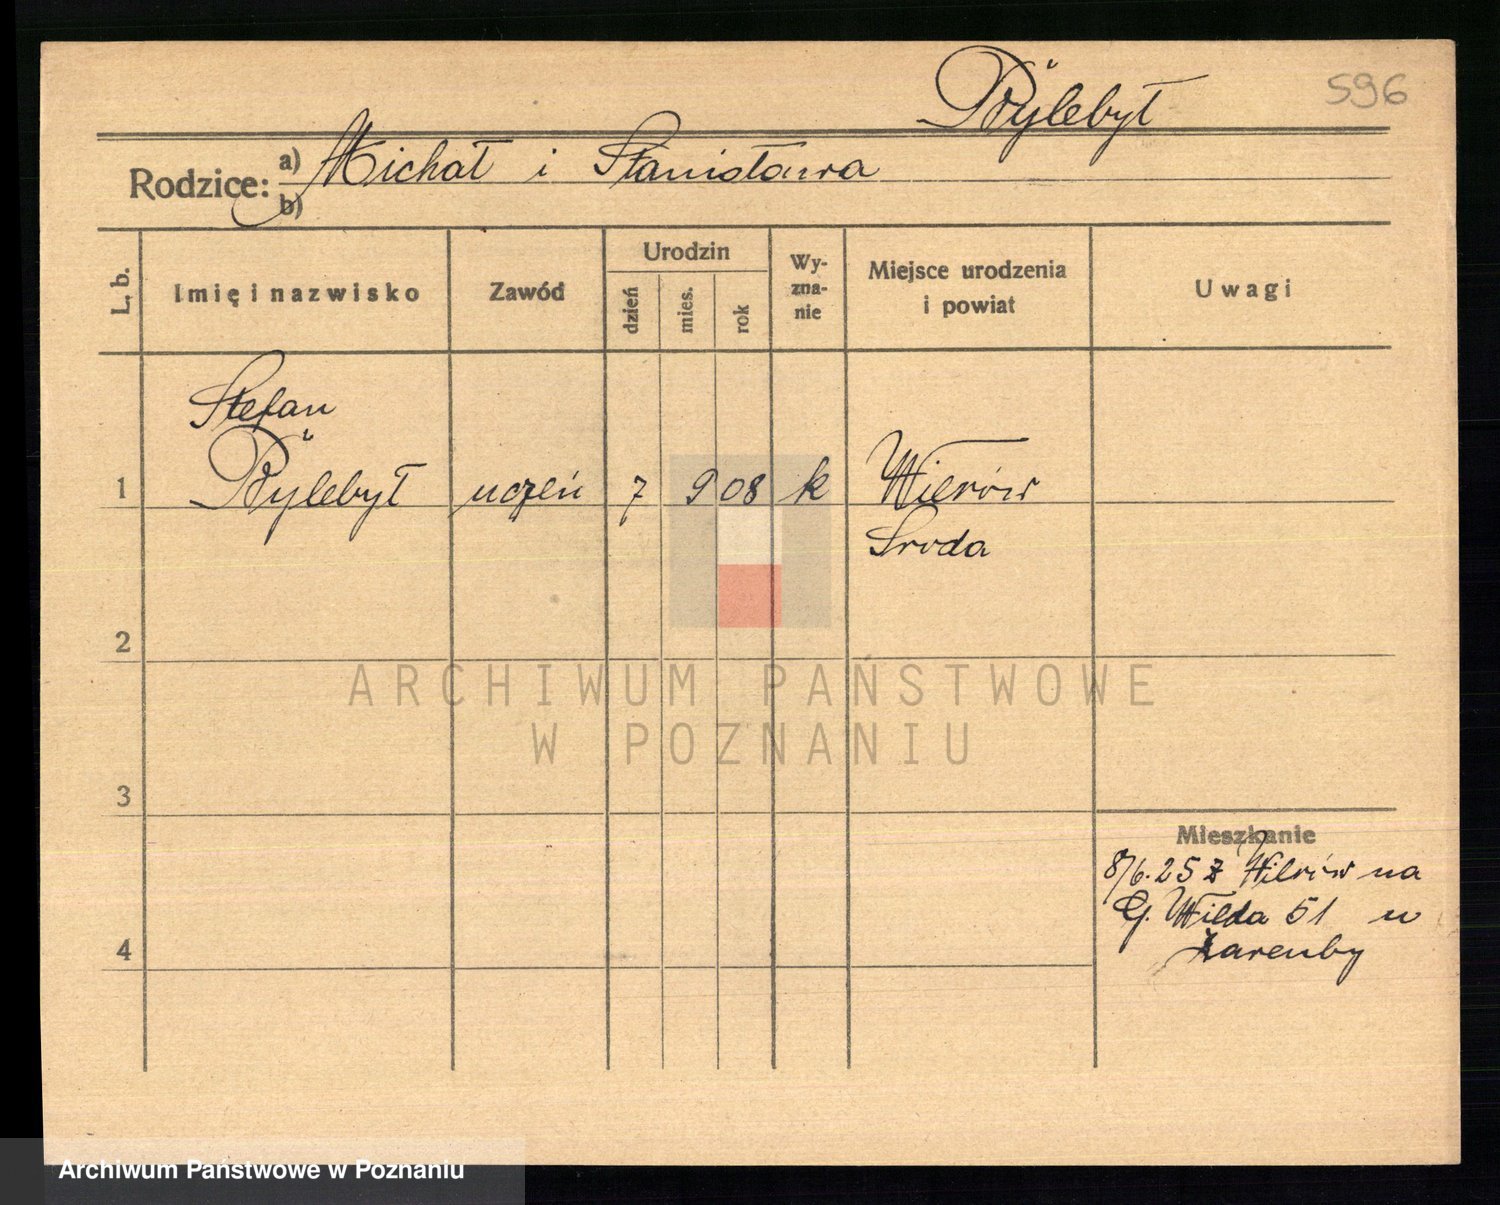 596
Bÿlebył
Rodzice: a) Michał i Stanisława
b)
L. b. Imię i nazwisko Zawód Urodzin dzień mies. rok Wy-zna-nie Miejsce urodzenia i powiat Uwagi
Stefan
1 Bÿlebył uczeń 7 9 08 k
Środa
2
3
4
Mieszkanie
8/6.25 z na
G. Wilda 51 u
Zaremby
ARCHIWUM PAŃSTWOWE
W POZNANIU
Archiwum Państwowe w Poznaniu